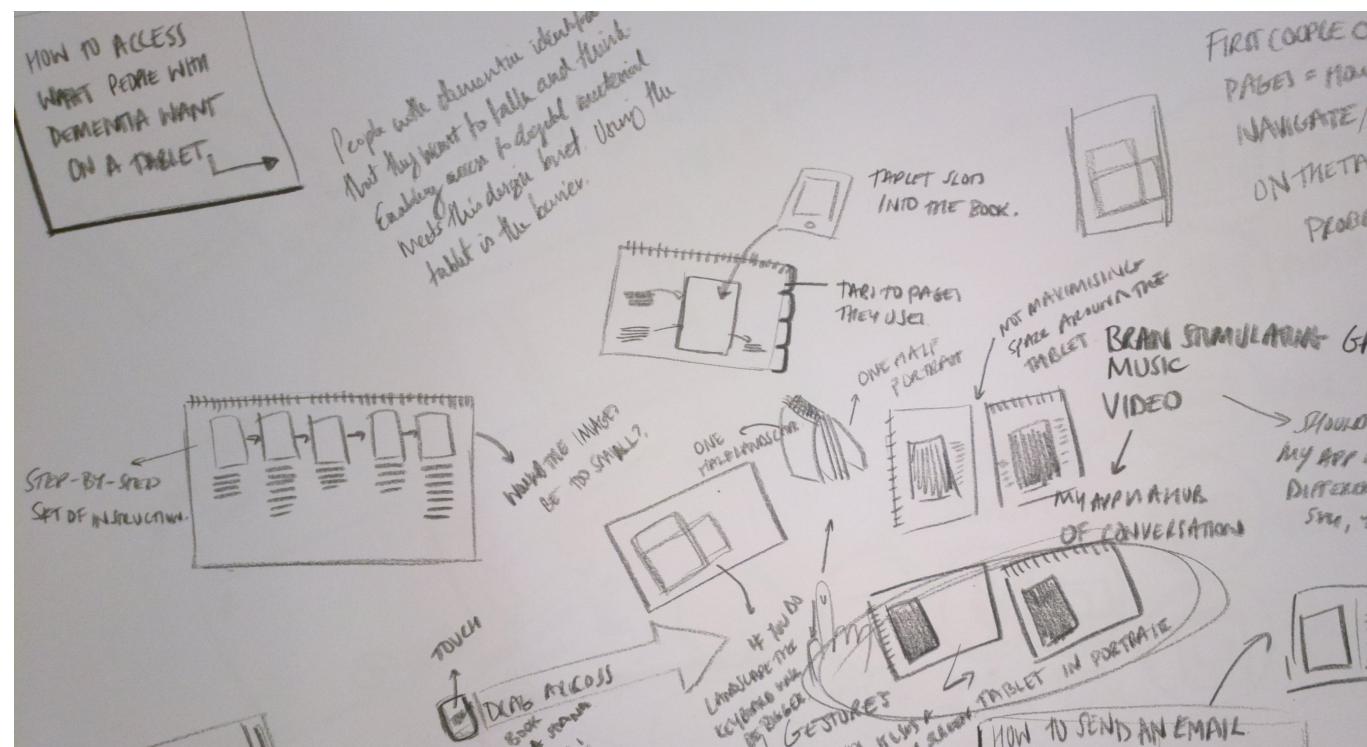 HOW TO ACCESS
WHAT PEOPLE WITH
DEMENTIA WANT
ON A TABLET
People with dementia
that they want to talk and think
Enabling access to digital material
meets this design brief. Using the
tablet is the barrier.
TABLET SLOTS
INTO THE BOOK.
TABS TO PAGES
THEY USE.
FIRST COUPLE
PAGES =
NAVIGATE/
ON THE
NOT MAXIMISING
SPACE AROUND THE
TABLET
BRAIN STIMULATING
MUSIC
VIDEO
MY APP IS A HUB
OF CONVERSATION
SHOULD
MY APP
ONE HALF
PORTRAIT
ONE
HALF LANDSCAPE
STEP-BY-STEP
SET OF INSTRUCTION.
WOULD THE IMAGES
BE TOO SMALL?
TOUCH
DRAG ACROSS
BOOK
IF YOU DO
LANDSCAPE THE
KEYBOARD WILL
BE BIGGER.
GESTURES
TABLET IN PORTRAIT
HOW TO SEND AN EMAIL